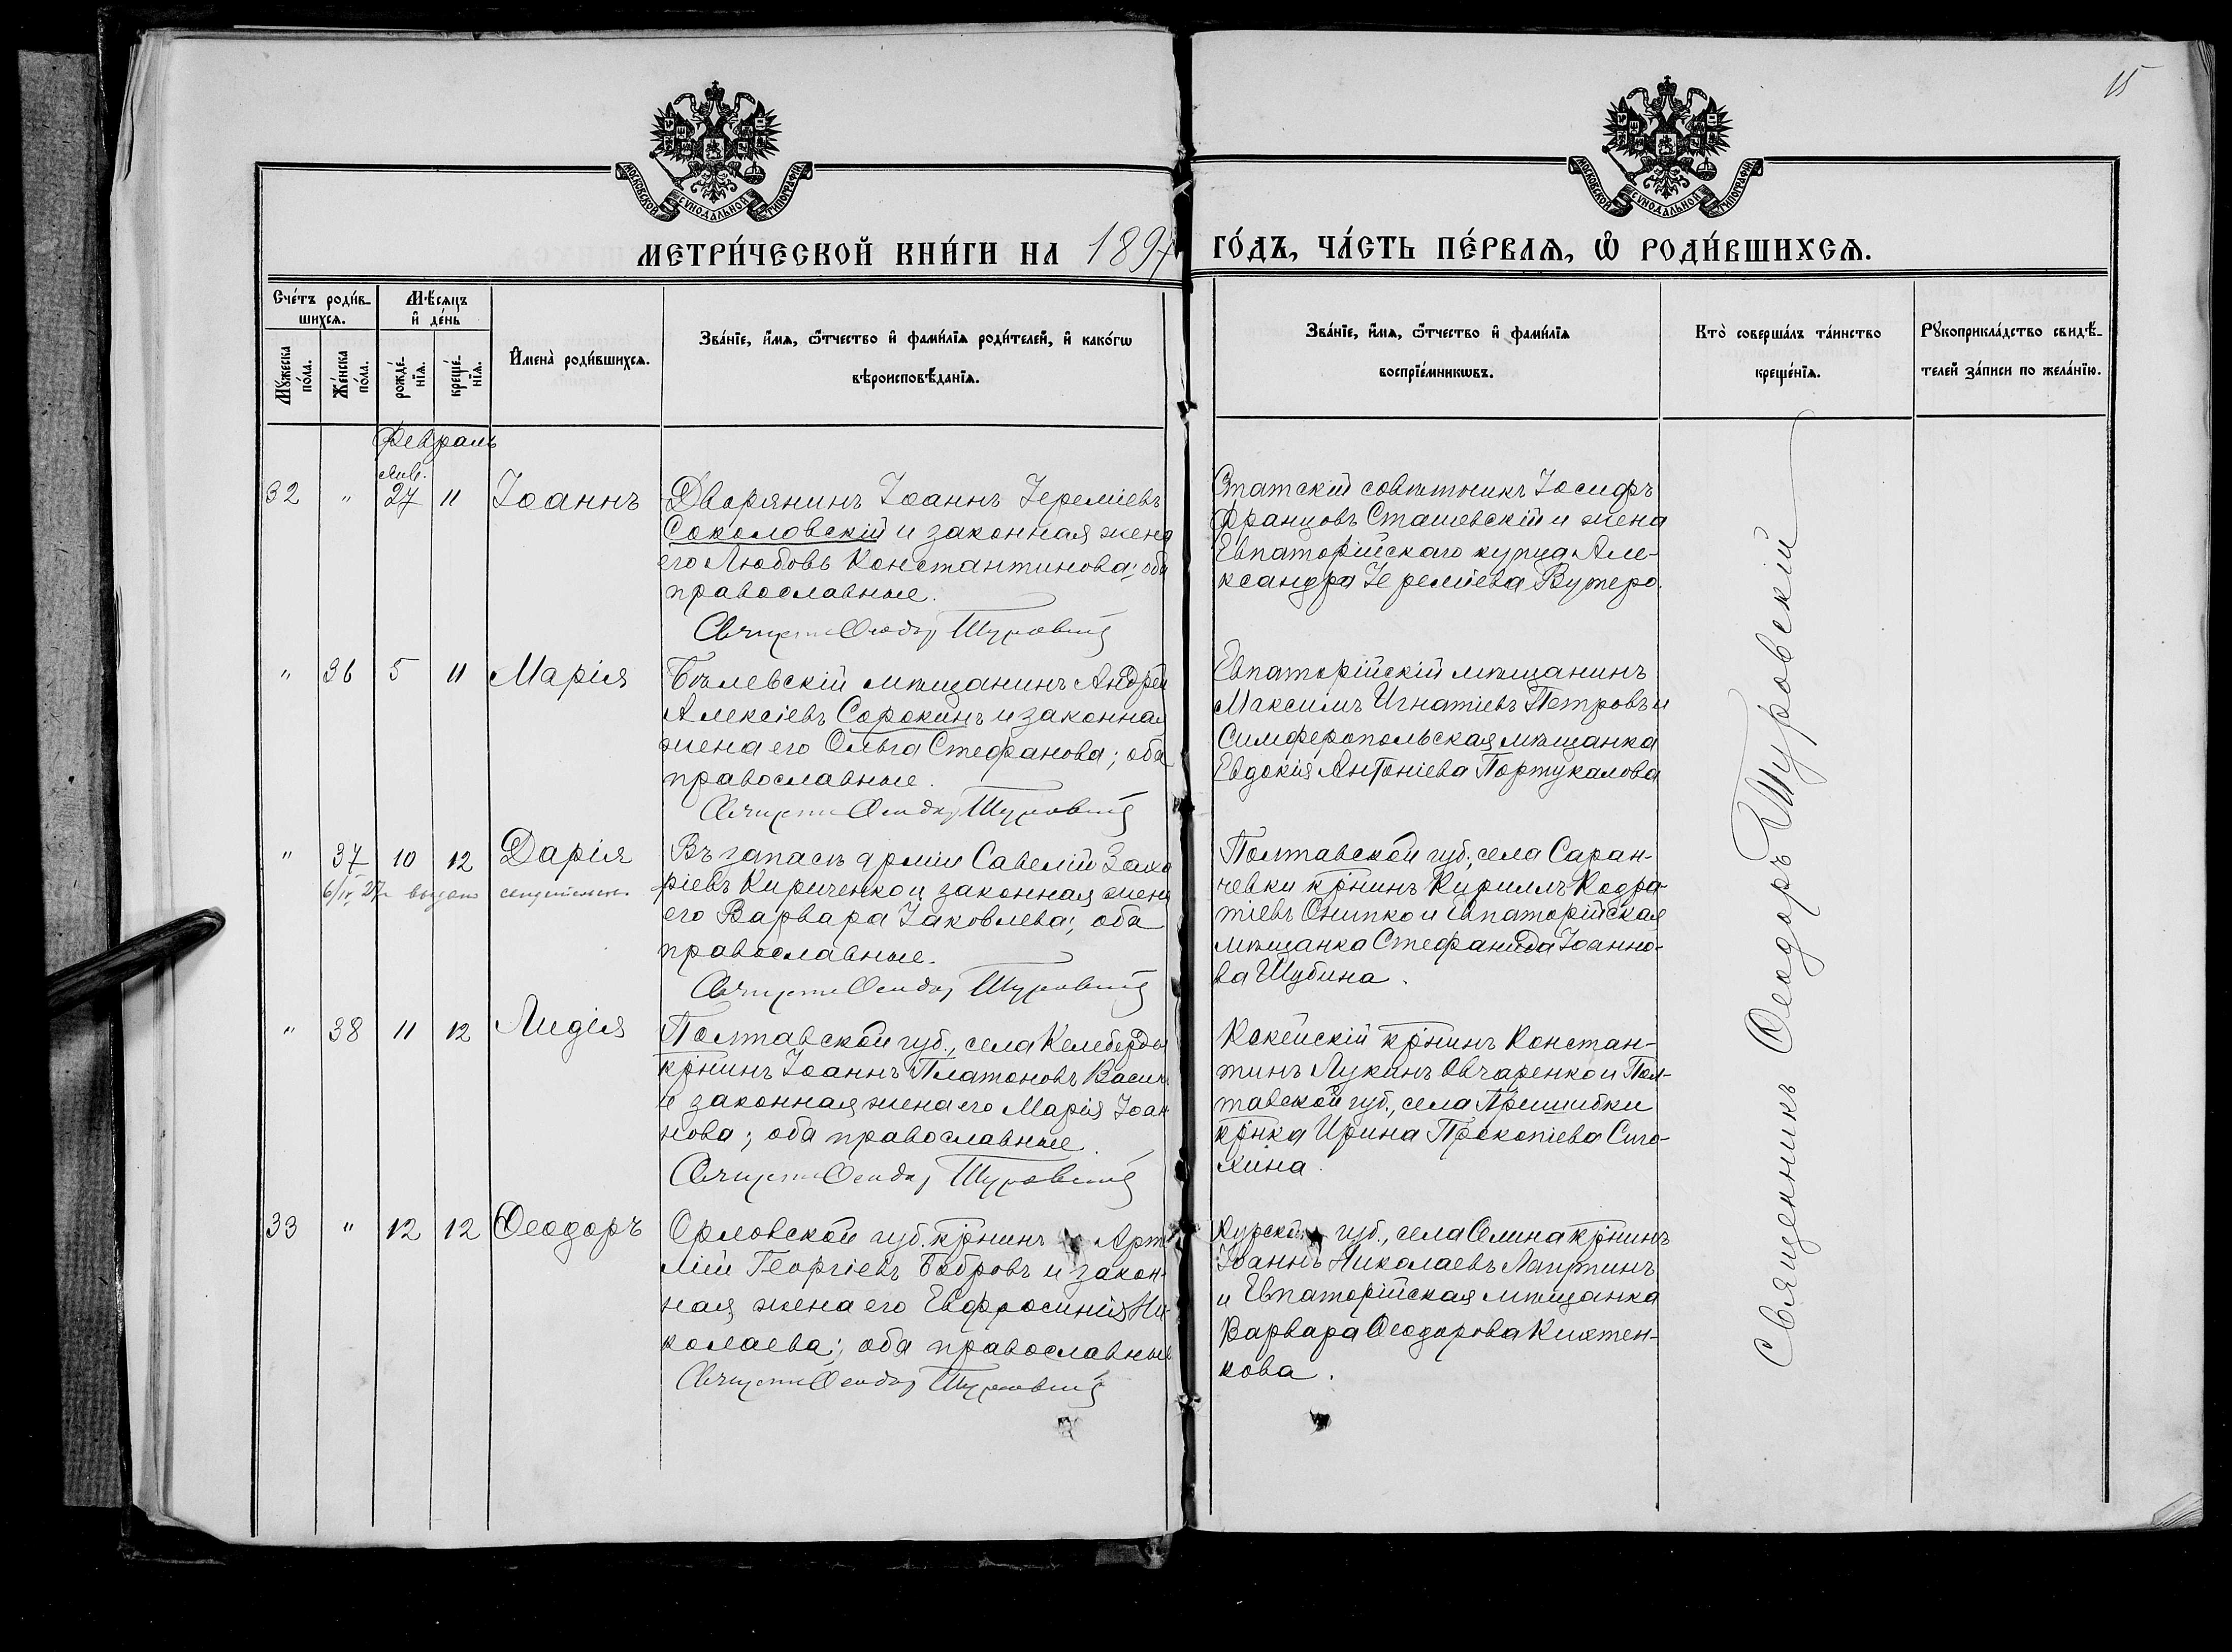 15
МОСКОВСКОЙ СѴНОДАЛЬНОЙ ТИПОГРАФІИ
МОСКОВСКОЙ СѴНОДАЛЬНОЙ ТИПОГРАФІИ
МЕТРИ́ЧЕСКОЙ КНИ́ГИ НА 1897 ГО́ДЪ, ЧА́СТЬ ПЕ́РВАѦ, Ѡ҆ РОДИ́ВШИХСѦ.
Сче́тъ роди́в-
шихсѧ.
Мꙋ́жеска по́ла.
Же́нска по́ла.
Мѣ́сѧцъ
и҆ де́нь
рожде́-нїѧ.
креще́-нїѧ.
И҆мена̀ роди́вшихсѧ.
Зва́нїе, и҆́мѧ, ѻ҆́тчество и҆ фами́лїѧ роди́телей, и҆ како́гѡ
вѣроисповѣ́данїѧ.
Зва́нїе, и҆́мѧ, ѻ҆́тчество и҆ фами́лїѧ
воспрїе́мникѡвъ.
Кто̀ соверша́лъ та́инство
креще́нїѧ.
Рꙋкоприкла́дство свидѣ́-
телей за́писи по жела́нїю.
Февраль
32 " Янв. 27 11 Іоаннъ
Дворянинъ Іоаннъ Іереміевъ
Соколовскій и законная жена
его Любовь Константинова; оба
православные.
Священникъ Ѳеодоръ Шуровскій
Статскій совѣтникъ Іосифъ
Францовъ Сташевскій и жена
Евпаторійскаго купца Але-
ксандра Іереміева Вутеро.
" 36 5 11 Марія
Бѣлевскій мѣщанинъ Андрей
Алексіевъ Сорокинъ и законная
жена его Ольга Стефанова; оба
православные.
Священникъ Ѳеодоръ Шуровскій
Евпаторійскій мѣщанинъ
Максимъ Игнатіевъ Петровъ и
Симферопольская мѣщанка
Евдокія Антоніева Портукалова
" 37 10 12 Дарія
6/IV 27 г. выдано свидѣтельство
Въ запасѣ арміи Савелій Заха
ріевъ Кириченко и законная жена
его Варвара Іаковлева; оба
православные.
Священникъ Ѳеодоръ Шуровскій
Полтавской губ., села Саран-
чевки кр̃нинъ Кириллъ Кодра-
тіевъ Онипко и Евпаторійская
мѣщанка Стефанида Іоанно-
ва Шубина.
" 38 11 12 Лидія
Полтавской губ., села Келеберды
кр̃нинъ Іоаннъ Платоновъ
и законная жена его Марія Іоан
нова; оба православные.
Священникъ Ѳеодоръ Шуровскій
кр̃нинъ Констан-
тинъ Лукинъ Овчаренко и Пол-
тавской губ., села Пришибки
кр̃нка Ирина Прокопіева
33 " 12 12 Ѳеодоръ
Орловской губ. кр̃нинъ Арте
мій Георгіевъ Бобровъ и закон-
ная жена его Евфросинія Ни
колаева; оба православные
Священникъ Ѳеодоръ Шуровскій
Курской губ., села Селина кр̃нинъ
Іоаннъ Николаевъ Лапутинъ
и Евпаторійская мѣщанка
Варвара Ѳеодорова
кова.
Священникъ Ѳеодоръ Шуровскій